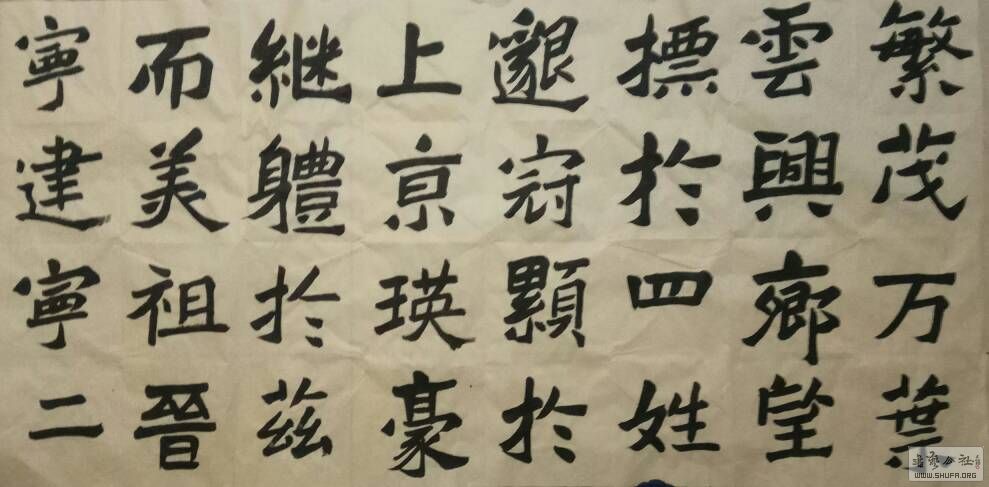 繁茂万葉
雲興鄉望
摽於四姓
邈冠顯於
上京瑛豪
継軆於茲
而美祖晉
寧建寧二
WWW.SHUFA.ORG